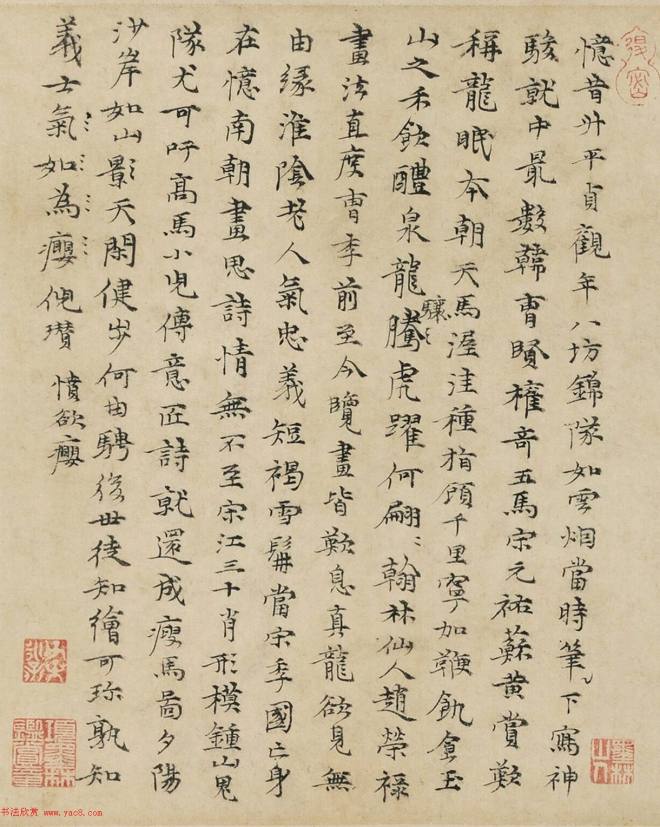 憶昔升平貞觀年八坊錦隊如雲烟當時筆〻下寫神
駿就中最數韓曹賢權奇五馬宋元祐蘇黃賞歎
稱龍眠本朝天馬渥洼種指顧千里寧加鞭飢食玉
山之禾飲醴泉龍騰虎躍何翩〻翰林仙人趙榮祿
驤〻
畫法直度曹季前至今覽畫皆歎息真龍欲見無
由緣淮陰老人氣忠義短褐雪髯當宋季國亡身
在憶南朝畫思詩情無不至宋江三十肖形模鍾山鬼
隊尤可吁高馬小兒傳意匠詩就還成瘦馬圖夕陽
沙岸如山影天閑健步何由騁後世徒知繪可珍孰知
義士氣如為癭 憤欲癭
书法欣赏 www.yac8.com